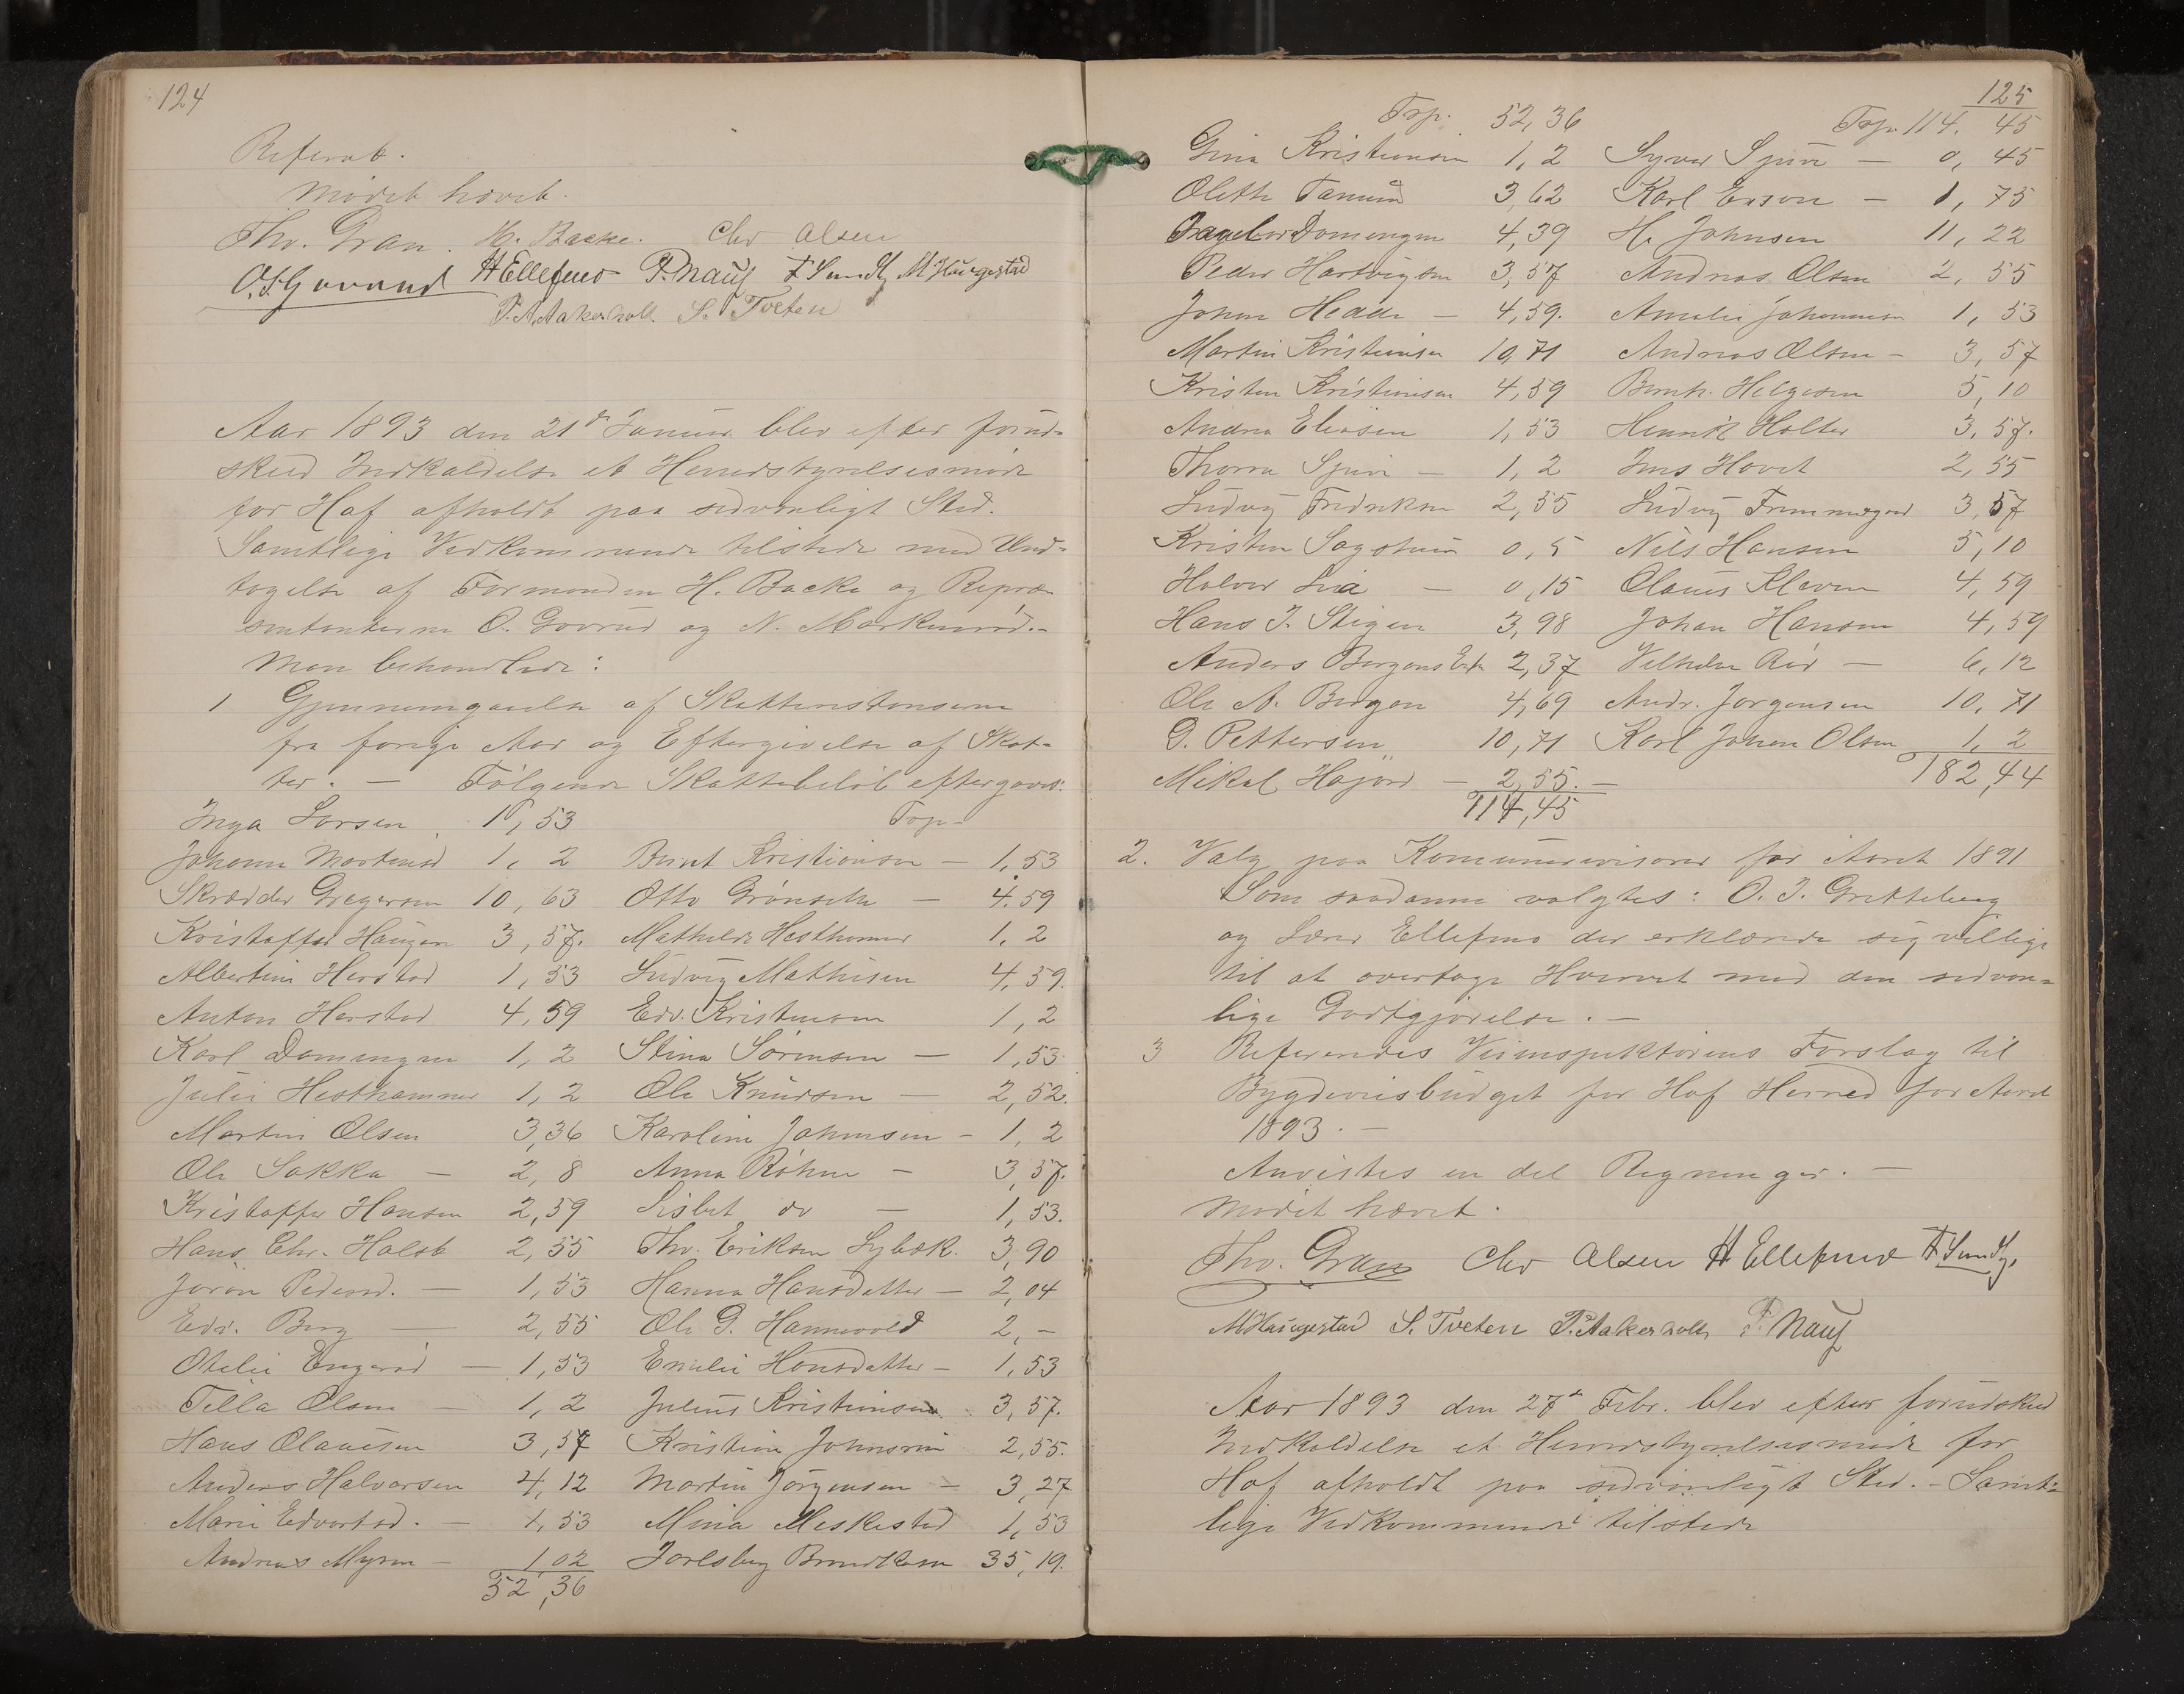 124
Referat.
Mødet hævet.
Thv. Gran. H. Backe. Chr Olsen
O. Gavrud H Ellefmo P. Nauf F Sundt M Haugestad
P. A. Aakerholt. S. Tveten
Aar 1893 den 21de Januar blev efter forud-
skeed Indkaldelse et Herredstyrelsesmøde
for Hof afholdt paa sedvanligt Sted.
Samtlige Vedkommende tilstede med Und-
tagelse af Formanden H. Backe og Repræ-
sentanterne O. Gavrud og N. Markerud.-
Man behandlede:
1 Gjennemgaaelse af Skatterestanserne
fra forige Aar og Eftergivelse af Skat-
ter. — Følgende Skattebeløb eftergaves:
Inga Larsen 1,53 Trsp-
Johann Mortensd 1, 2 Bernt Kristiansen — 1,53
Skrædder Gregersen 10,63 Otto Grønsett — 4.59
Kristoffer Haugen 3,57. Mathilde Hesthammer 1, 2
Albertine Herstad 1,53 Ludvig Mathisen 4,59.
Anton Herstad 4,59 Edv. Kristensen 1, 2
Karl Damengen 1, 2 Stina Sørensen — 1,53
Julie Hesthammer 1, 2 Ole Knudsen — 2,52.
Martin Olsen 3,36 Karoline Johnsen - 1, 2
Ole Sakka — 2, 8 Anna Røhne — 3,57.
Kristoffer Hansen 2,59 Lisbet do — 1,53.
Hans Chr. Holst 2,55 Thv. Eriksen Lybæk. 3,90
Joran Pedersd. — 1,53 Hanna Hansdatter — 2,04
Edv. Berg — 2,55 Ole G. Hannevold 2, -
Otelie Engerød — 1,53 Emelie Hansdatter — 1,53
Tella Olsen — 1, 2 Julius Kristiansen. 3,57.
Hans Olausen 3,57 Kristian Johnsen 2,55.
Anders Halvorsen 4,12 Martin Jørgensen — 3,27
Marie Edvartsd. — 1,53 Mina Meskestad 1,53
Andreas Myren — 1,02 Jarlsberg Brændsten 35,19.
52,36
125
Trsp. 52,36 Trsp. 114. 45
Gina Kristiansen 1, 2 Syver Spun — 0, 45
Olette Tanum 3,62 Karl Enson — 1, 75
Ingebor Damengen 4,39 H. Johnsen 11, 22
Peder Hartvigsen 3,57 Andreas Olsen 2, 55
Johan Hedde — 4,59. Amalie Johannesen 1, 53
Martin Kristiansen 10,71 Andreas Olsen — 3, 57
Kristen Kristiansen 4,59 Bernh. Helgesen 5, 10
Andrea Eliasen 1,53 Henrik Holter 3, 57.
Thorra Spun — 1, 2 Jens Hovet 2, 55
Ludvig Fredriksen 2,55 Ludvig Fremmegard 3,57
Kristen Sagstuen 0,5 Nils Hansen 5,10
Halvor Lia — 0,15 Olaus Kleven 4,59
Hans J. Stigen 3,98 Johan Hansen 4,59
Anders Bergans Enke 2,37 Vilhelm Rød — 6,12
Ole A. Bergan 4,69 Andr. Jørgensen 10, 71
G. Pettersen 10,71 Karl Johan Olsen 1, 2
Mikal Hajord — 2,55. — 182,44
114,45
2. Valg paa Komunerevisorer for Aaret 1891
Som saadanne valgtes: O. J. Gretteberg
og Lærer Ellefmo der erklærede sig villige
til at overtage Hvervet med den sedvan-
lige Godtgjørelse. —
3 Refereredes Veiinspektørens Forslag til
Bygdeveisbudget for Hof Herred for Aaret
1893. —
Anvistes en del Regninger. —
Mødet hævet.
Thv. Gran Chr Olsen H Ellefmo F Sundt,
M Haugestad S. Tveten P. Aakerholt P. Nauf
Aar 1893 den 27de Febr. blev efter forudskeed
Indkaldelse et Herredstyrelsesmøde for
Hof afholdt paa sedvanligt Sted. - Samt-
lige Vedkommende tilstede